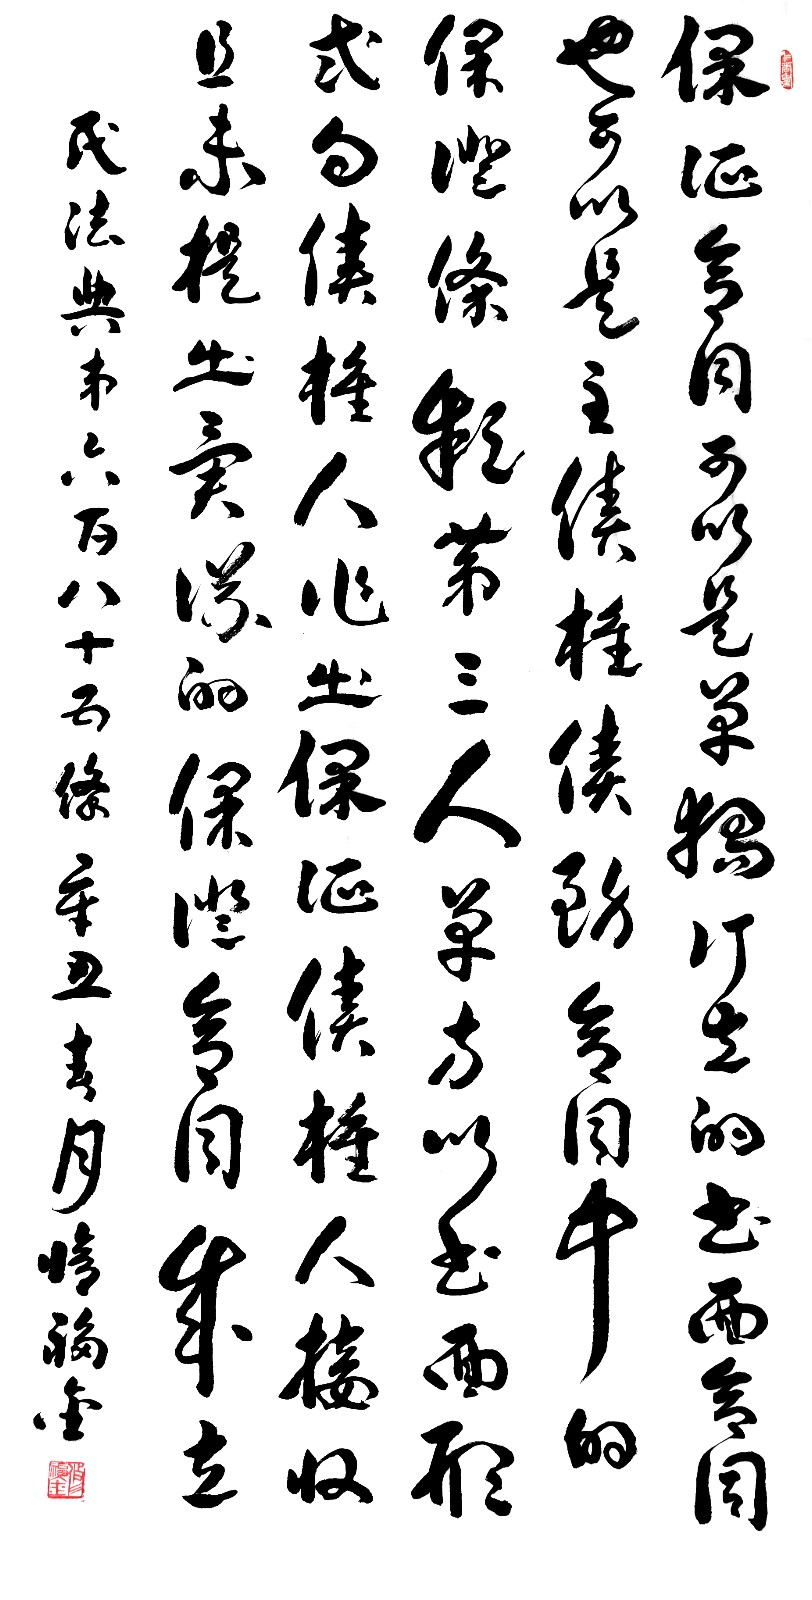 保证合同可以是单獨订立的书面合同
也可以是主债権债务合同中的
保證條款第三人单方以书面形
式向债権人作出保证债権人接收
且未提出異議的保證合同成立
民法典第六百八十五條辛丑春月福金